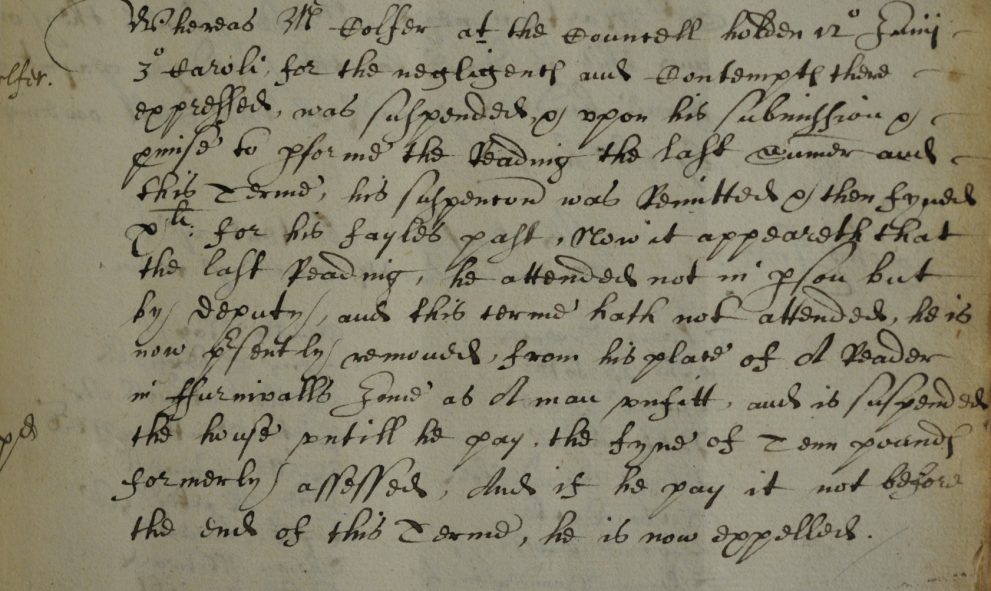 Whereas Mr Colfer at the Councell holden 12o Junij
olfer.
3o Caroli, for the negligence and Contempte there
expressed, was suspended, & upon his submission &
pmise to pforme the Reading the last Sumer and
this Terme, his suspencon was Remitted & then fyned
xli. for his fayles past, Now it appeareth that
the last Reading, he attended not in pson but
by deputy, and this terme hath not attended, he is
now prsently removed, from his place of A Reader
in ffurnivalls Inne as A man unfitt, and is suspended
the house untill he pay, the fyne of Tenn pounds
formerly assessed, And if he pay it not before
the end of this Terme, he is now expelled.